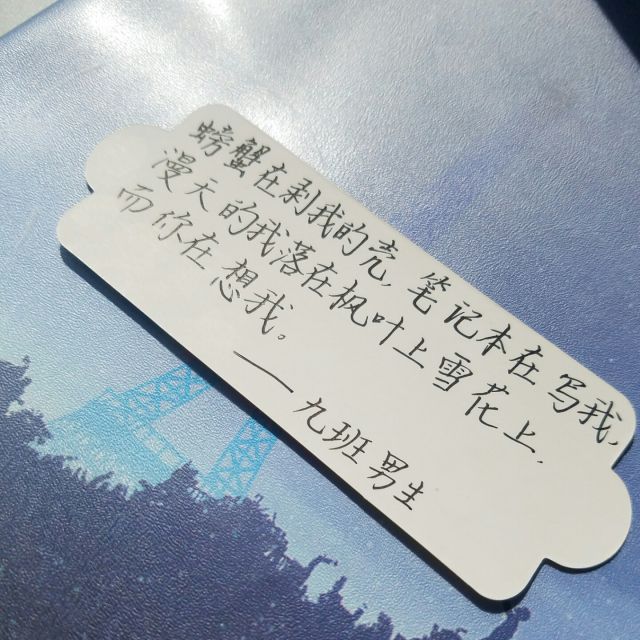 螃蟹在剥我的壳,笔记本在写我,
漫天的我落在枫叶上雪花上.
而你在想我。
——九班男生